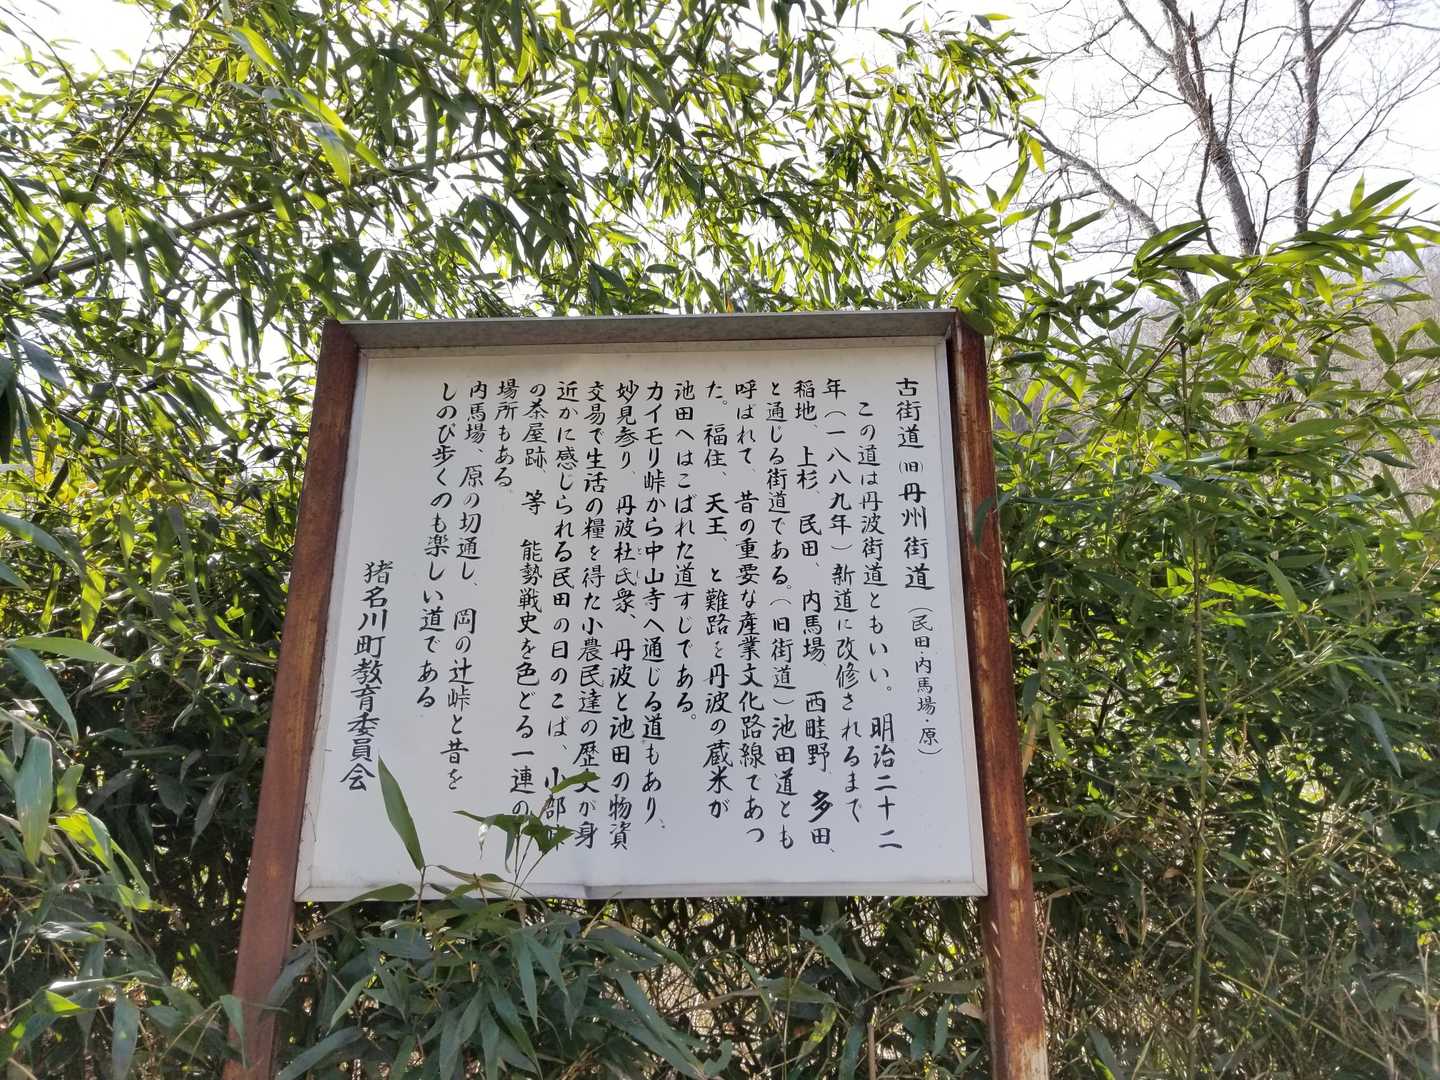 古街道(旧)丹州街道(民田・内馬場・原)
この道は丹波街道ともいい。明治二十二
年(一八八九年)新道に改修されるまで
稲地、上杉、民田、内馬場 西畦野、多田、
と通じる街道である。(旧街道)池田道とも
呼ばれて、昔の重要な産業文化路線であつ
た。福住、天王、と難路を丹波の蔵米が
池田へはこばれた道すじである。
カイモリ峠から中山寺へ通じる道もあり、
妙見参り、丹波杜氏衆、丹波と池田の物資
交易で生活の糧を得た小農民達の歴史が身
近かに感じられる民田の日のこば、小部
の茶屋跡、等 能勢戦史を色どる一連の
場所もある。
内馬場、原の切通し、岡の辻峠と昔を
しのび歩くのも楽しい道である
猪名川町教育委員会